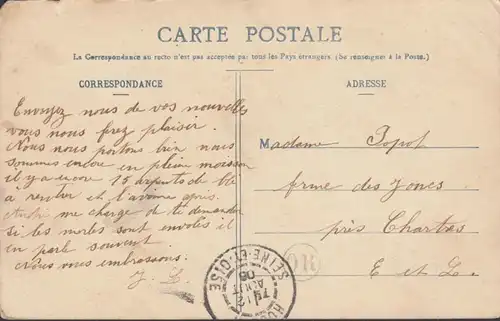 CARTE POSTALE
La Correspondance au recto n'est pas acceptée par tous les Pays étrangers (Se renseigner à la Poste.)
CORRESPONDANCE
ADRESSE
Envoyez nous de vos nouvelles
vous nous ferez plaisir.
Nous nous portons bien nous
sommes encore en pleine moisson
il y a encore 15 arpents de blé
à rentrer et l'avoine après.
me charge de te demander
si les merles sont envolés il
en parle souvent
Nous vous embrassons.
J. L.
Madame Popot
ferme des Joncs
près Chartres
E et L.
OR
SEINE-ET-OISE
12
AOUT
05